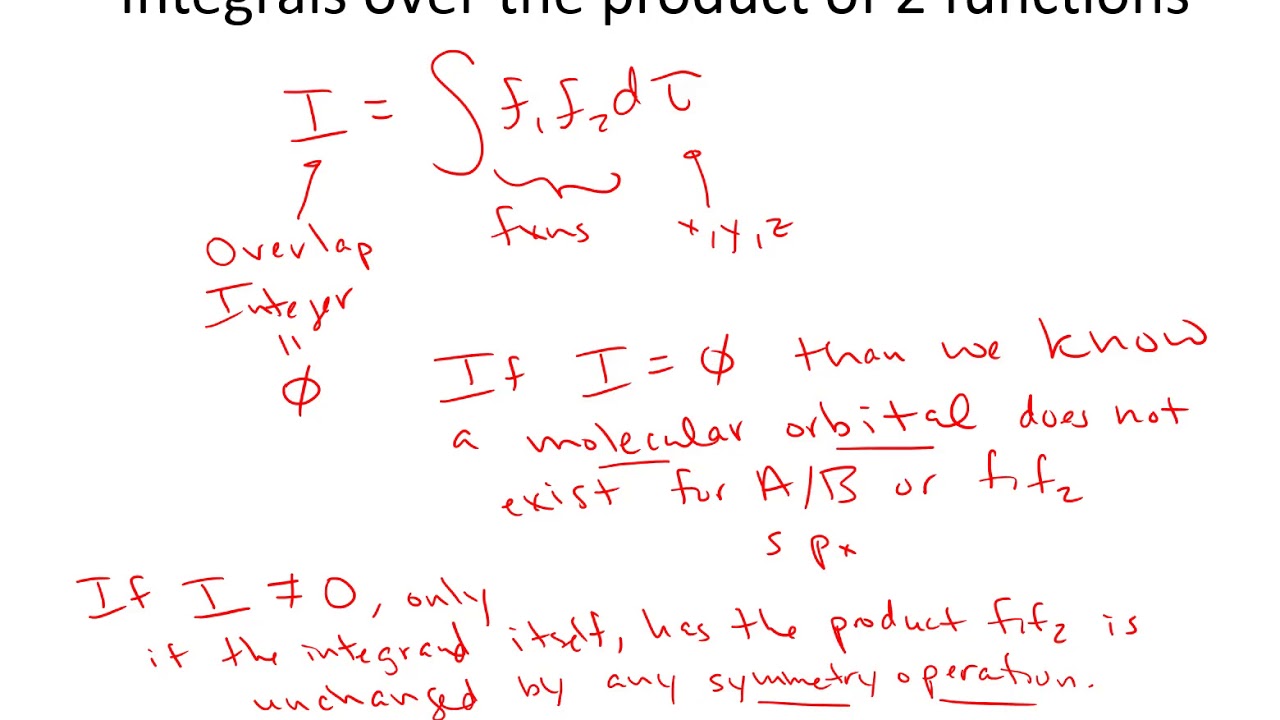 Integrals over the product of 2 functions
I = ∫ f₁ f₂ dτ
fxns
x, y, z
Overlap
Integer
=
ϕ
If I = ϕ than we know
a molecular orbital does not
exist for A/B or f₁f₂
s px
If I ≠ 0, only
if the integrand itself, has the product f₁f₂ is
unchanged by any symmetry operation.